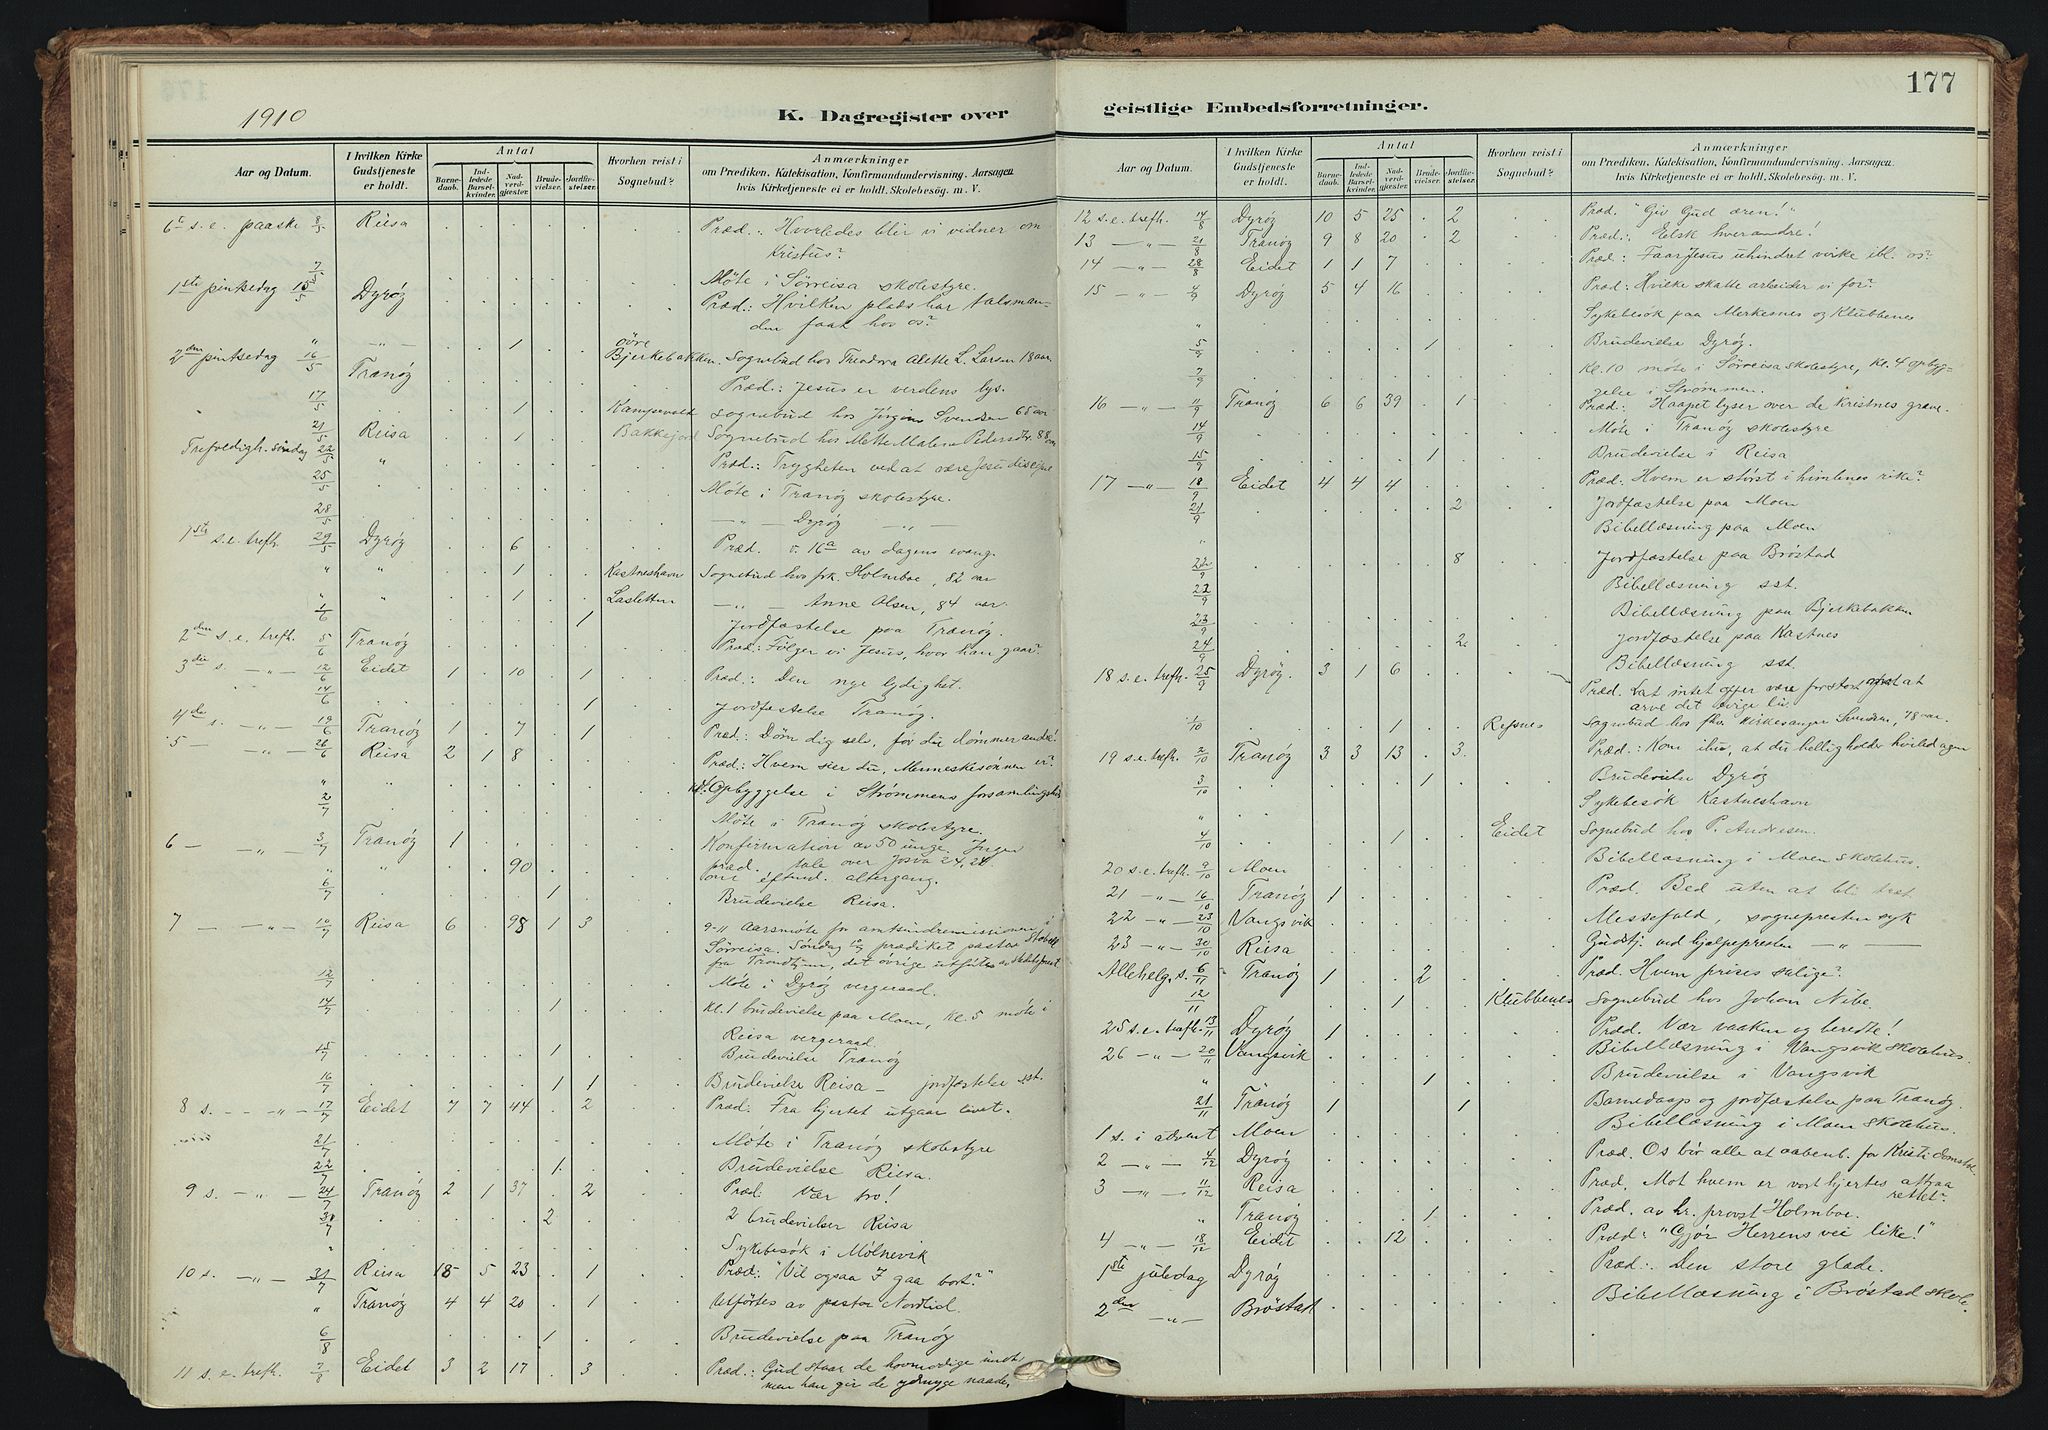 1910
K. Dagregister over
Aar og Datum.
I hvilken Kirke Gudstjeneste er holdt.
Antal
Barnedaab.
Indledede Barselkvinder.
Nadverdgjester.
Brudevielser.
Jordfæstelser.
Hvorhen reist i Sognebud?
Anmærkninger
om Prædiken, Katekisation, Konfirmandundervisning. Aarsagen
hvis Kirketjeneste ei er holdt. Skolebesøg. m. V.
6te s. e. paaske 8/5 Reisa Præd.: Hvorledes blir vi vidner om
Kristus?
7/5 Möte i Sörreisa skolestyre.
1ste pinsedag 15/5 Dyröy Præd.: Hvilken plads har talsman-
den faat hos os?
" — " — 1 övre Bjerkebakken. Sognebud hos Theodora Alette L. Larsen 18 aar
2den pintsedag 16/5 Tranöy Præd.: Jesus er verdens lys.
17/5 1 Kampevold Sognebud hos Jörgen Svendsen 65 aar
21/5 Reisa 1 Bakkejord Sognebud hos Mette Malene Pedersdtr. 88 aar
Trefoldigh. söndag 22/5 " Præd.: Trygheten ved at være Jesu discipel
25/5 Möte i Tranöy skolestyre.
28/5 — " — Dyröy — " —
1ste s. e. trefh. 29/5 Dyröy 6 Præd. v. 16a av dagens evang.
" " 1 Kastneshavn Sognebud hos frk. Holmboe, 82 aar
" " 1 Lasletten — " — Anne Olsen, 84 aar.
1/6 1 Jordfæstelse paa Tranöy.
2den s. e. trefh. 5/6 Tranöy Præd.: Fölger vi Jesus, hvor han gaar?
3die s. — " — 12/6 Eidet 1 10 1 Præd.: Den nye lydighet.
14/6 1 Jordfæstelse Tranöy.
4de s. — " — 19/6 Tranöy 1 7 1 Præd.: Döm dig selv, før du dömmer andre!
5 — " — 26/6 Reisa 2 1 8 Præd.: Hvem sier du, Menneskesönnen er?
" Opbyggelse i Strömmens forsamlingshus
2/7 Möte i Tranöy skolestyre.
6 — " — 3/7 Tranöy 1 Konfirmation av 50 unge. Ingen
præd. tale over Josva 24,24
" " 90 om eftmd. altergang.
6/7 1 Brudevielse Reisa.
7 — " — 10/7 Reisa 6 98 1 3 9-11 Aarsmöte for amtsindremissionen i
Sörreisa. Söndag 10/7 prædiket pastor
fra Trondhjem, det övrige utförtes av stedets prest
12/7 Möte i Dyröy vergeraad.
14/7 1 Kl. 1 brudevielse paa Moen, kl. 5 möte i
Reisa vergeraad.
15/7 1 Brudevielse Tranöy
16/7 1 1 Brudevielse Reisa — jordfæstelse sst.
8 s. — " — 17/7 Eidet 7 7 44 2 Præd: Fra hjertet utgaar livet.
21/7 Möte i Tranöy skolestyre
22/7 1 Brudevielse Reisa.
9 s. — " — 24/7 Tranöy 2 1 37 2 Præd: Vær tro!
30/7 2 2 brudevielser Reisa
" Sykebesök i Mölnevik
10 s. — " — 31/7 Reisa 18 5 23 1 Præd: "Vil ogsaa I gaa bort?"
" Tranöy 4 4 20 1 Utförtes av pastor Nordlid.
6/8 1 Brudevielse paa Tranöy
11 s. e. trefh. 7/8 Eidet 3 2 17 3 Præd.: Gud staar de hovmodige imot,
men han gir de ydmyge naade.
177
geistlige Embedsforretninger.
Aar og Datum.
I hvilken Kirke Gudstjeneste er holdt.
Antal
Barnedaab.
Indledede Barselkvinder.
Nadverdgjester.
Brudevielser.
Jordfæstelser.
Hvorhen reist i Sognebud?
Anmærkninger
om Prædiken, Katekisation, Konfirmandundervisning. Aarsagen
hvis Kirketjeneste ei er holdt. Skolebesøg. m. V.
12 s. e. trefh. 14/8 Dyröy 10 5 25 2 Præd. "Giv Gud æren!"
13 — " — 21/8 Tranöy 9 8 20 2 Præd.: Elsk hverandre!
14 — " — 28/8 Eidet 1 1 7 Præd: Faar Jesus uhindret virke ibl. os?
15 — " — 4/9 Dyröy 5 4 16 Præd: Hvilke skatte arbeider vi for?
" Sykebesök paa Merkesnes og Klubbenes
5/9 1 Brudevielse Dyröy.
7/9 Kl. 10 möte i Sörreisa skolestyre, kl. 4 opbyg-
gelse i Strömmen.
16 — " — 11/9 Tranöy 6 6 39 1 Præd.: Haapet lyser over de kristnes grave.
14/9 Möte i Tranöy skolestyre
15/9 1 Brudevielse i Reisa
17 — " — 18/9 Eidet 4 4 4 Præd: Hvem er störst i himlenes rike?
21/9 2 Jordfæstelse paa Moen
" Bibellæsning paa Moen
22/9 8 Jordfæstelse paa Bröstad
22/9 Bibellæsning sst.
23/9 Bibellæsning paa Bjerkebakken
24/9 2 Jordfæstelse paa Kastnes
Bibellæsning sst.
18 s. e. trefh. 25/9 Dyröy. 3 1 6 Præd. Lat intet offer være for stort for at
arve det evige liv.
1/10 1 Refsnes Sognebud hos fhv. kirkesanger Svendsen, 78 aar.
19 s. e. trefh. 2/10 Tranöy 3 3 13 3 Præd.: Kom ihu, at du helligholder hviledagen
3/10 1 Brudevielse Dyröy
" Sykebesök Kastneshavn
4/10 1 Eidet Sognebud hos P. Andresen.
20 s. e. trefh. 9/10 Moen Bibellæsning i Moen skolehus.
21 — " — 16/10 Tranöy 1 Præd. Bed uten at bli træt
22 — " — 23/10 Vangsvik Messefald, sognepresten syk
23 — " — 30/10 Reisa Gudstj. ved hjelpepresten — " —
Allehelg. s. 6/11 Tranöy 1 2 Præd. Hvem prises salige?
12/11 1 Klubbenes Sognebud hos Johan Nibe.
25 s. e. trefh. 13/11 Dyröy 1 Præd. Vær vaaken og beredte!
26 — " — 20/11 Vangsvik Bibellæsning i Vangsvik skolehus.
" 1 Brudevielse i Vangsvik
21/11 Tranöy 1 1 Barnedaap og jordfæstelse paa Tranöy.
1 s. i advent Moen Bibellæsning i Moen skolehus.
2 — " — 4/12 Dyröy Præd. Os bör alle at aabenb. for Kristi domstol
3 — " — 11/12 Reisa Præd. Mot hvem er vort hjertes attraa
rettet?
" Tranöy 1 Præd. av hr. provst Holmboe.
4 — " — 18/12 Eidet 12 Præd: "Gjör Herrens vei like!"
1ste juledag Dyröy Præd.: Den store glæde.
2den — " — Bröstad Bibellæsning i Bröstad skole.